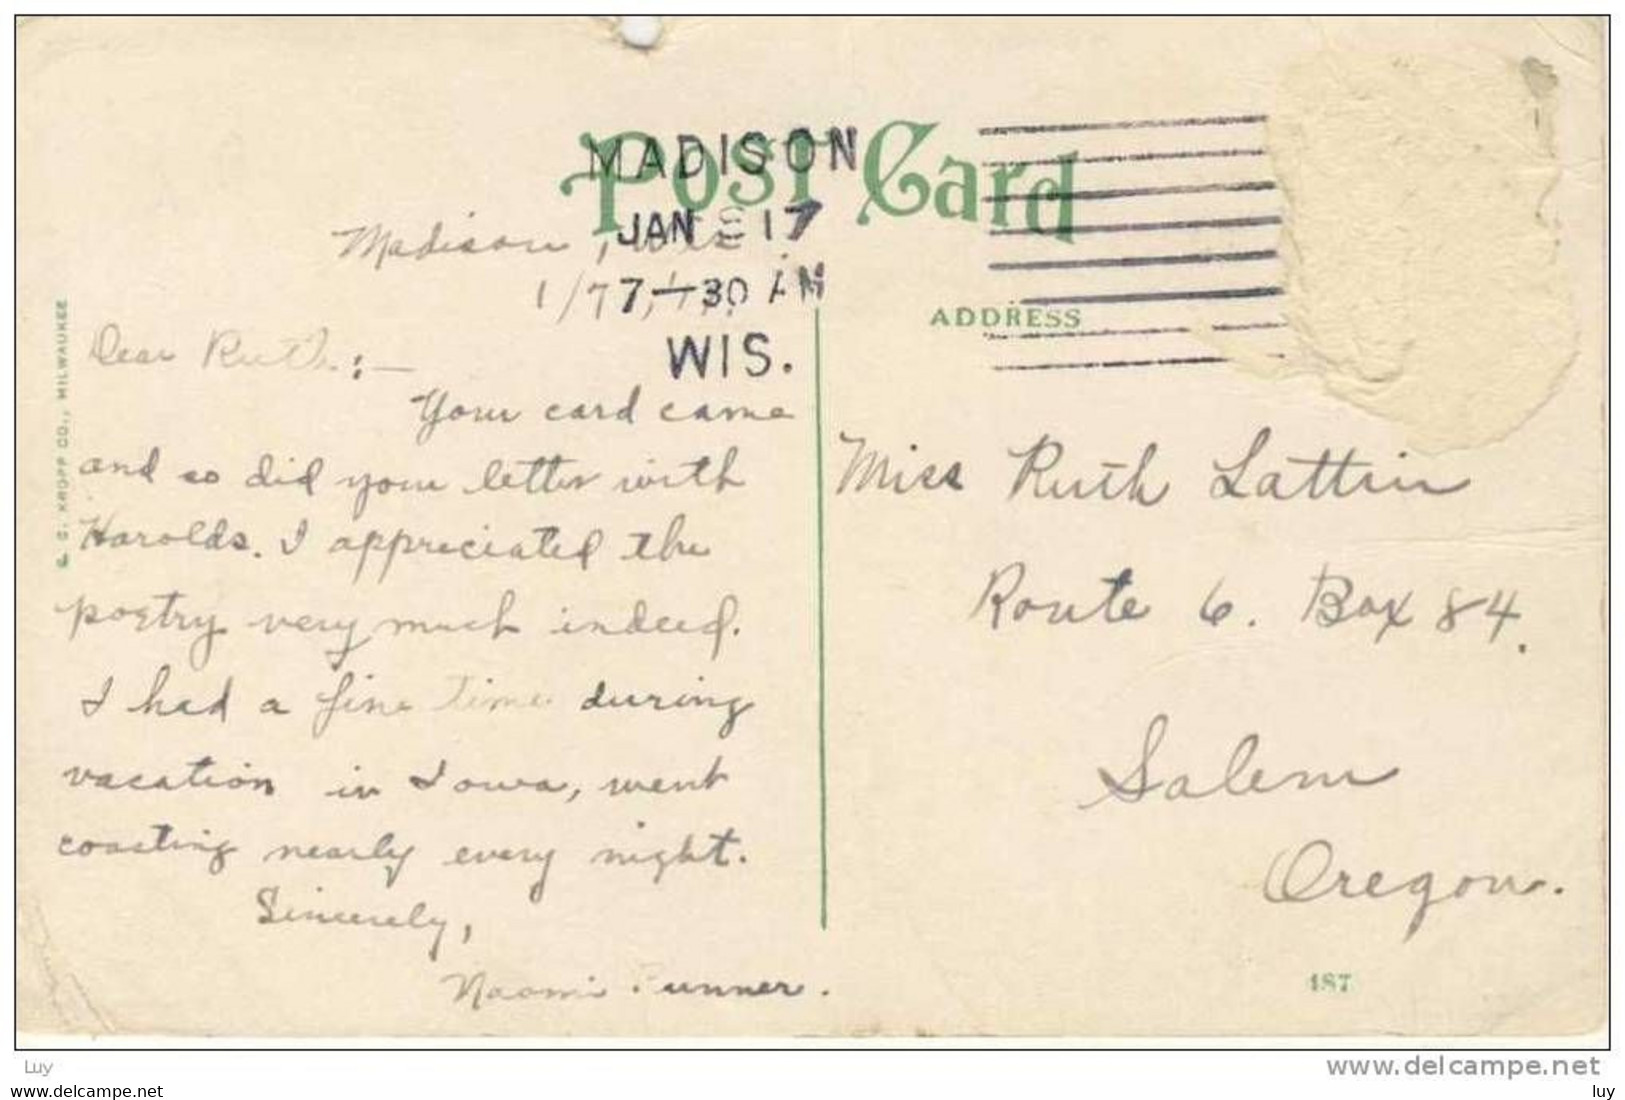 Post Card
MADISON
JAN 8 17
7-30 AM
WIS.
Madison, Wis
1/7
ADDRESS
E. C. KROPP CO., MILWAUKEE
Dear Ruth:—
Your card came
and so did your letter with
Harolds. I appreciated the
poetry very much indeed.
I had a fine time during
vacation in Iowa, went
coasting nearly every night.
Sincerely,
Naomi
Miss Ruth Lattin
Route 6. Box 84.
Salem
Oregon.
187
Luy
www.delcampe.net
luy